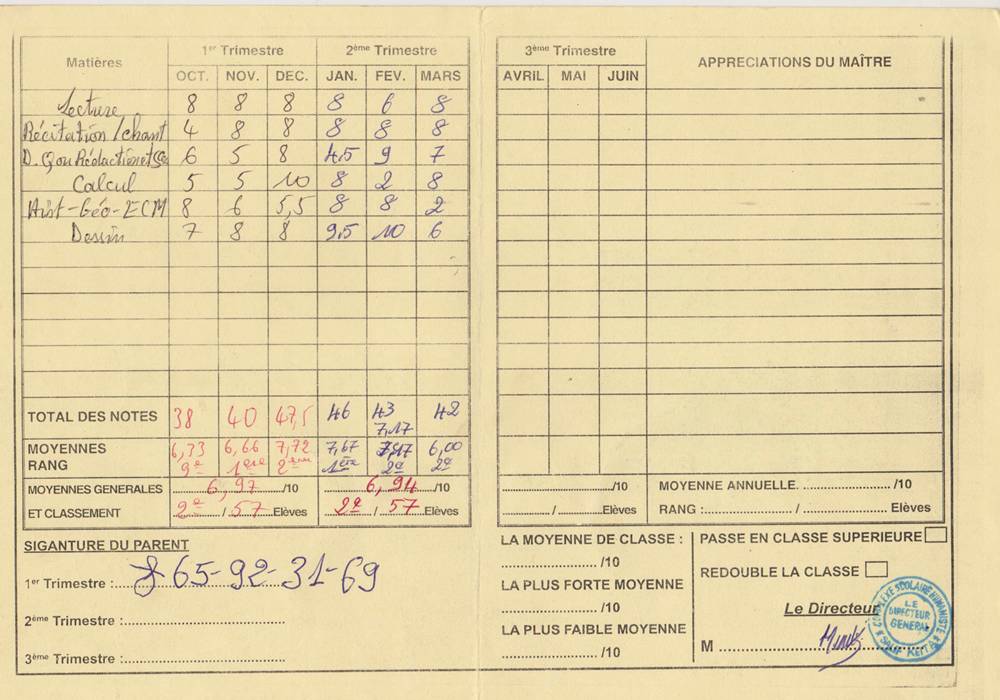 Matières 1er Trimestre 2ème Trimestre
OCT. NOV. DEC. JAN. FEV. MARS
Lecture 8 8 8 8 6 8
Récitation/chant 4 8 8 8 8 8
D. Q ou Rédaction et 6 5 8 4,5 9 7
Calcul 5 5 10 8 2 8
Hist-Géo-ECM 8 6 5,5 8 8 2
Dessin 7 8 8 9,5 10 6
TOTAL DES NOTES 38 40 47,5 46 43 42
7,17
MOYENNES 6,33 6,66 7,72 7,67 7,17 6,00
RANG 9e 1ère 2ème 1ère 2e 2e
MOYENNES GENERALES 6,97 /10 6,94 /10
ET CLASSEMENT 2e / 57 Elèves 2e / 57 Elèves
SIGANTURE DU PARENT
1er Trimestre : 65-92-31-69
2ème Trimestre :
3ème Trimestre :
3ème Trimestre APPRECIATIONS DU MAÎTRE
AVRIL MAI JUIN
/10 MOYENNE ANNUELLE /10
/ Elèves RANG : / Elèves
LA MOYENNE DE CLASSE : PASSE EN CLASSE SUPERIEURE
/10
REDOUBLE LA CLASSE
LA PLUS FORTE MOYENNE
/10 Le Directeur
LA PLUS FAIBLE MOYENNE
/10 M
COMPLEXE SCOLAIRE HUMANISTE
LE
DIRECTEUR
GENERAL
SALIF KEITA